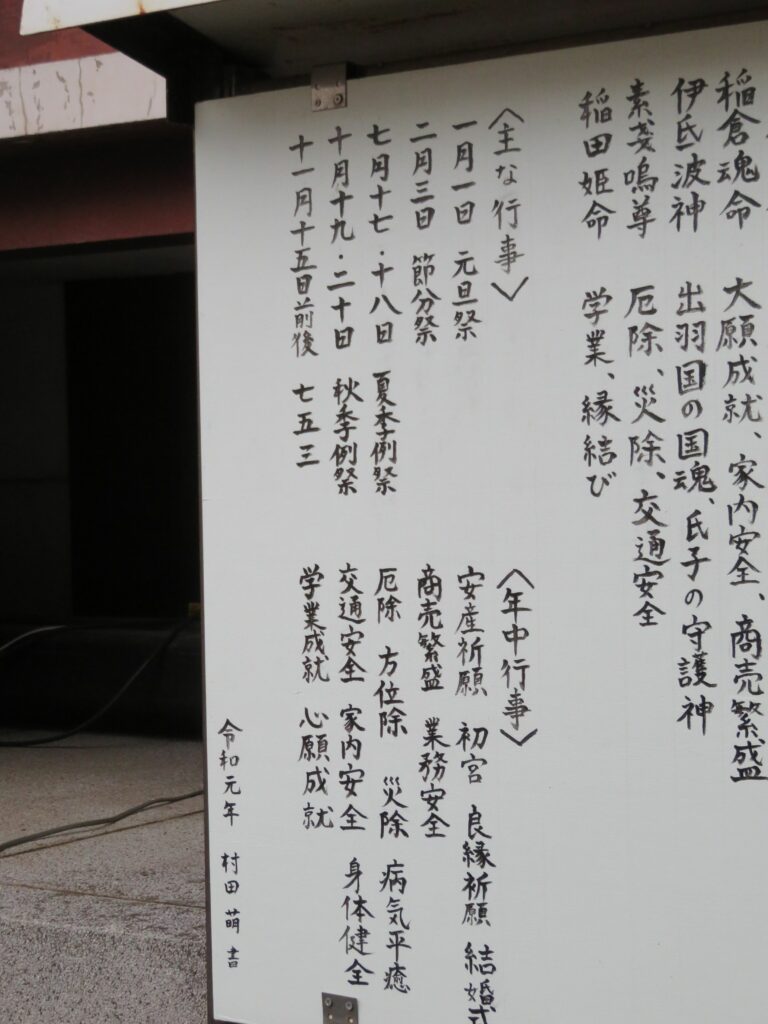 稲倉魂命 大願成就、家内安全、商売繁盛
伊氐波神 出羽国の国魂、氏子の守護神
素戔嗚尊 厄除、災除、交通安全
稲田姫命 学業、縁結び
〈主な行事〉
一月一日 元旦祭
二月三日 節分祭
七月十七・十八日 夏季例祭
十月十九・二十日 秋季例祭
十一月十五日前後 七五三
〈年中行事〉
安産祈願 初宮 良縁祈願 結婚式
商売繁盛 業務安全
厄除 方位除 災除 病気平癒
交通安全 家内安全 身体健全
学業成就 心願成就
令和元年 村田萌書